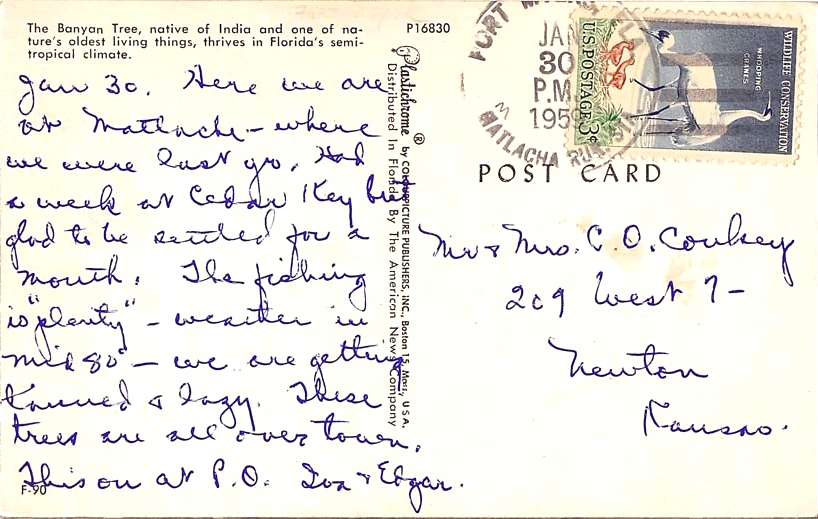 The Banyan Tree, native of India and one of na-
ture's oldest living things, thrives in Florida's semi-
tropical climate.
P16830
Jan 30. Here we are
at Matlacha - where
we were last yr. Had
a week at Cedar Key but
glad to be settled for a
month. The fishing
is "plenty" - weather in
mid 80° - we are getting
tanned & lazy. These
trees are all over town.
This on at P.O. Iva & Edgar.
F-90
Plastichrome ® by COLOURPICTURE PUBLISHERS, INC., Boston 15, Mass., U.S.A.
Distributed In Florida By The American News Company
FORT MYERS, FLA.
JAN
30
P.M.
195
MATLACHA RUR. STA.
U.S. POSTAGE 3¢
WHOOPING
CRANES
WILDLIFE CONSERVATION
POST CARD
Mr & Mrs. C. O.
209 West 7-
Newton
Kansas.